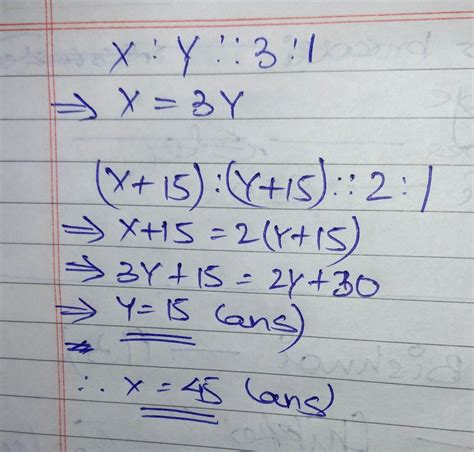 X : Y :: 3 : 1
⇒ X = 3Y
(X+15) : (Y+15) :: 2 : 1
⇒ X+15 = 2(Y+15)
⇒ 3Y+15 = 2Y+30
⇒ Y = 15 (ans)
∴ X = 45 (ans)